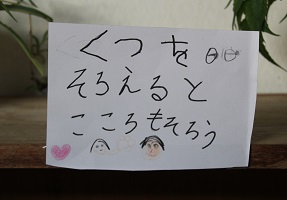 くつを
そろえると
こころもそろう